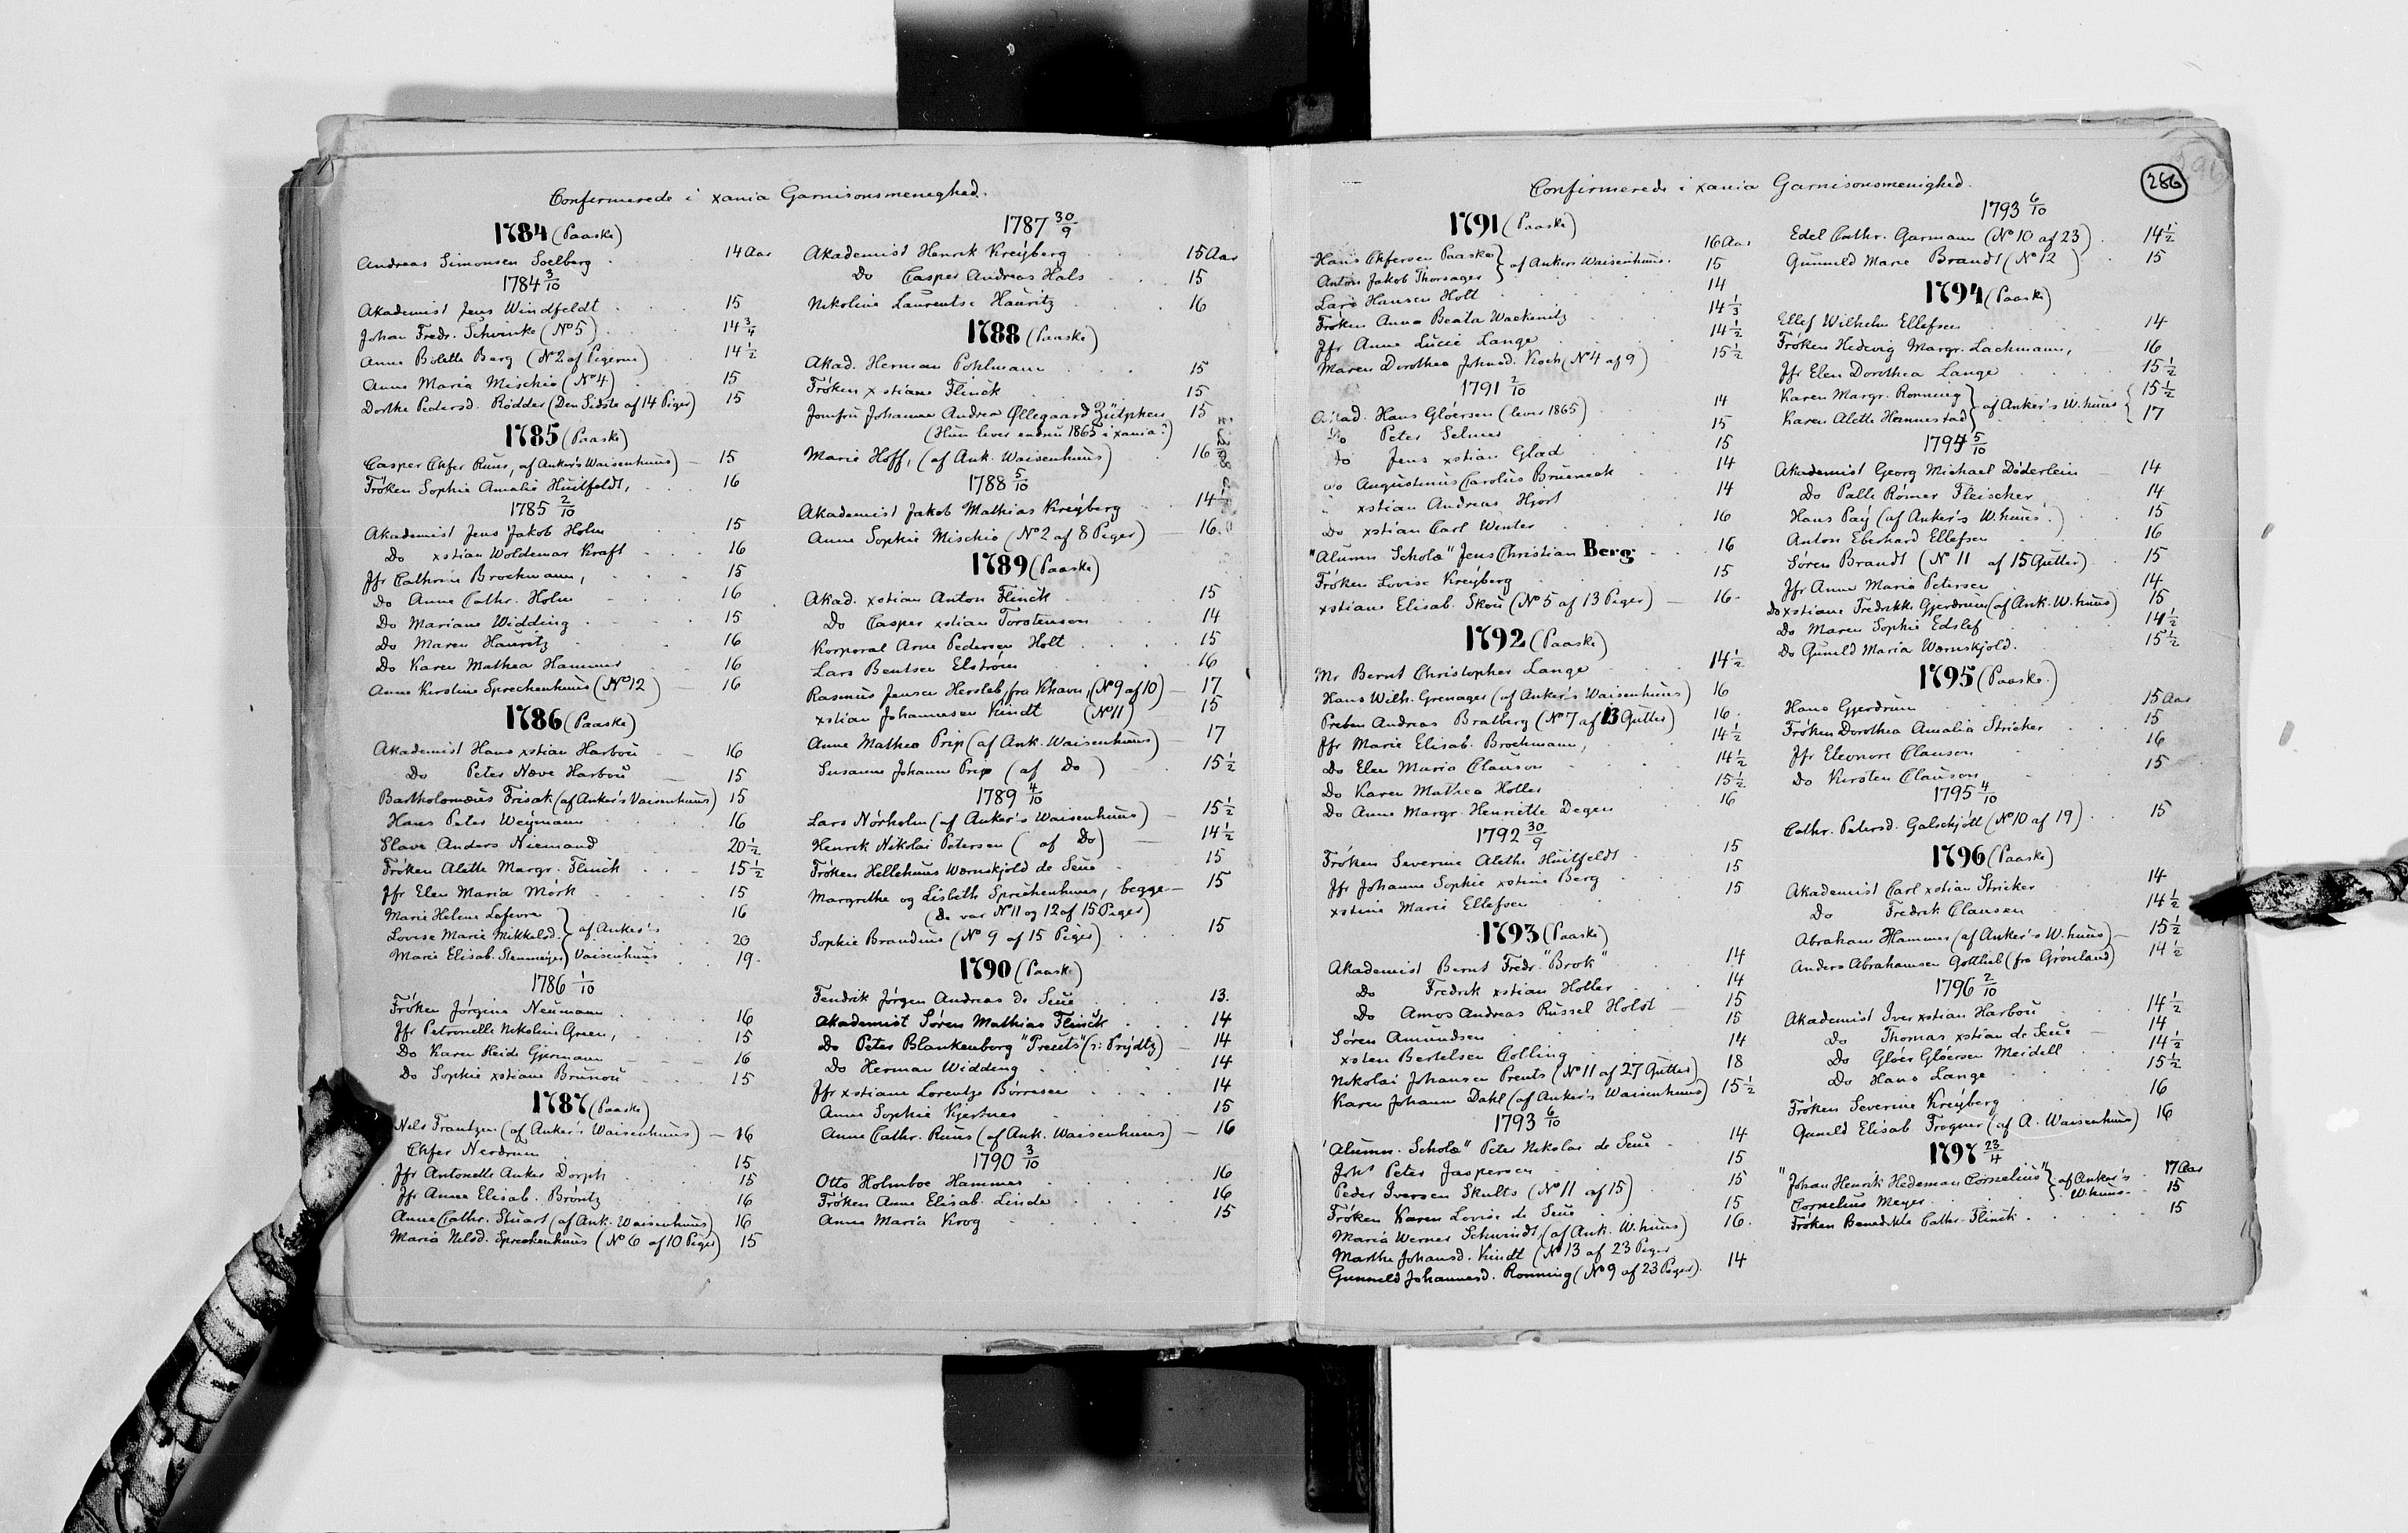 Confirmerede i xania Garnisonsmenighed.
1784 (Paaske)
Andreas Simonsen Soelberg 14 Aar
1784 3/10
Akademist Jens Windfeldt 15
Johan Fredr. Schwinke (No 5) 14 3/4
Anne Bolette Berg (No 2 af Pigerne) 14 1/2
Anne Maria Mischio (No 4) 15
Dorthe Pedersd. Rödder (Den Sidste af 14 Piger) 15
1785 (Paaske)
Casper Chfer Ruus, af Anker's Waisenhuus) 15
Fröken Sophie Amalie Huitfeldt, 16
1785 2/10
Akademist Jens Jakob Holm 15
Do xstian Woldemar Kraft 16
Jfr Cathrine Brockmann, 15
Do Anne Cathr. Holm 16
Do Mariane Widding 15
Do Maren Hauritz 16
Do Karen Mathea Hammer 16
Anne Kirstine Sprechenhuus (No 12) 16
1786 (Paaske)
Akademist Hans xstian Harbou 16
Do Peter Næve Harbou 15
Bartholomæus Frisak (af Anker's Vaisenhuus) 15
Hans Peter Weymann 16
Slave Anders Niemand 20 1/2
Fröken Alette Margr. Flinck 15 1/2
Jfr Elen Maria Mörk 15
Marie Helene Lefevre 16
Lovise Marie Mikkelsd. } af Anker's 20
Marie Elisab. Stenmeyer Vaisenhuus 19
1786 1/10
Fröken Jørgine Neumann 16
Jfr Petronelle Nikoline Green, 15
Do Karen Heide Gjermann 16
Do Sophie xstiane Brunou 15
1787 (Paaske)
Nils Frantzen (af Anker's Waisenhuus) 16
Chfer Nerdrum 15
Jfr Antonette Anker Dorph 15
Jfr Anne Elisab. Brontz 16
Anne Cathr. Stuart (af Ank. Waisenhuus) 16
Maria Nilsd. Sprechenhuus (No 6 af 10 Piger) 15
1787 30/9
Akademist Henrik Kreyberg 15 Aar
Do Casper Andreas Hals 15
Nikoline Laurentse Hauritz 16
1788 (Paaske)
Akad. Herman Pohlmann 15
Fröken xstiane Flinck 15
Jomfru Johanne Andrea Øllegaard Zütphen 15
(Hun lever endnu 1865 i xania?)
Marie Hoff, (af Ank. Waisenhuus) 16
1788 5/10
Akademist Jakob Mathias Kreyberg 14 1/2
Anne Sophie Mischio (No 2 af 8 Piger) 16
1789 (Paaske)
Akad. xstian Anton Flinck 15
Do Casper xstian Torstenson 14
Korporal Arne Pedersen Holt 15
Lars Bentsen Elström 16
Rasmus Jensen Hersleb, fra Khavn, (No 9 af 10) 17
xstian Johannesen Kindt (No 11) 15
Anne Mathea Prip (af Ank. Waisenhuus) 17
Susanne Johanne Prip (af Do) 15 1/2
1789 4/10
Lars Nörholm (af Anker's Waisenhuus) 15 1/2
Henrik Nikolai Petersen (af Do) 14 1/2
Fröken Hellehuus Wernskjold de Seue 15
Margrethe og Lisbeth Sprechenhuus, begge 15
(De var No 11 og 12 af 15 Piger)
Sophie Brandius (No 9 af 15 Piger) 15
1790 (Paaske)
Fendrik Jørgen Andreas de Seue 13.
Akademist Søren Mathias Flinck 14
Do Peter Blankenborg "Preuts" (ɔ: Prydtz) 14
Do Herman Widding 14
Jfr xstiane Lorentze Börresen 14
Anne Sophie Kjertnes 15
Anne Cathr. Ruus (af Ank. Waisenhuus) 16
1790 3/10
Otto Holmboe Hammer 16
Fröken Anne Elisab. Linde 16
Anne Maria Krog 15
Confirmerede i xania Garnisonsmenighed.
266
1791 (Paaske)
Hans Chfersen Paaske } af Ankers Waisenhuus. 16 Aar
Anton Jakob Thorsager 15
Lars Hansen Holt 14
Fröken Anna Beata Wackenitz 14 1/3
Jfr Anne Lucie Lange 14 1/2
Maren Dorothea Johnsd. Koch (No 4 af 9) 15 1/2
1791 2/10
Akad. Hans Glöersen (lever 1865) 14
Do Peter Selmer 15
Do Jens xstian Glad 15
Do Augustinus Carolus Bruenech 14
" xstian Andreas Hjort 14
Do xstian Carl Winter 16
"Alumn. Scholæ" Jens Christian Berg 16
Fröken Lovise Kreyberg 15
xstiane Elisab. Skou (No 5 af 13 Piger) 16
1792 (Paaske)
Mr Bernt Christopher Lange 14 1/2
Hans Wilh. Grenager (af Anker's Waisenhuus) 16
Preben Andreas Bratberg (No 7 af 13 Gutter) 16
Jfr Marie Elisab. Brochmann, 14 1/2
Do Elen Maria Clauson 14 1/2
Do Karen Mathea Holter 15 1/2
Do Anne Margr. Henriette Degen 16
1792 30/9
Fröken Severine Alethe Huitfeldt 15
Jfr Johanne Sophie xstine Berg 15
xstine Marie Ellefsen 15
1793 (Paaske)
Akademist Bernt Fredr. "Brok" 14
Do Fredrik xstian Holter 14
Do Amos Andreas Russel Holst 15
Søren Amundsen 15
xsten Bertelsen Colling 14
Nikolai Johansen Preuts (No 11 af 27 Gutter) 18
Karen Johanne Dahl (af Anker's Waisenhuus) 15 1/2
1793 6/10
"Alumn. Scholæ" Peter Nikolai de Seue 14
Johs Peter Jaspersen 15
Peder Iversen Skults (No 11 af 15) 15
Fröken Karen Lovise de Seue 15
Maria Werner Schwindt, (af Ank. W.huus) 16.
Marthe Johansd. Kindt (No 13 af 23 Piger
Gunneld Johannesd. Ronning (No 9 af 23 Piger). 14
1793 6/10
Edel Cathr. Garmann (No 10 af 23) 14 1/2
Gunneld Marie Brandt (No 12) 15
1794 (Paaske)
Ellef Wilhelm Ellefsen 14
Fröken Hedevig Margr. Lachmann, 16
Jfr Elen Dorothea Lange 15 1/2
Karen Margr. Ronning } af Anker's W.huus { 15 1/2
Karen Alette Hennestad 17
1794 5/10
Akademist Georg Michael Döderlein 14
Do Palle Römer Fleischer 14
Hans Pay (af Anker's W.huus.) 15
Anton Eberhard Ellefsen 16
Søren Brandt (No 11 af 15 Gutter) 15
Jfr Anne Maria Petersen 14
Do xstiane Fredrikke Gjerdrum (af Ank. W.huus) 15
Do Maren Sophie Edslef 14 1/2
Do Gunild Maria Wærnskjold. 15 1/2
1795 (Paaske)
Hans Gjerdrum 15 Aar
Fröken Dorothea Amalia Stricker 15
Jfr Eleonore Clauson 16
Do Kirsten Clauson 15
1795 4/10
Cathr. Petersd. Galschjött (No 10 af 19) 15
1796 (Paaske)
Akademist Carl xstian Stricker 14
Do Fredrik Clausen 14 1/2
Abraham Hammer (af Anker's W.huus) 15 1/2
Anders Abrahamsen Gottlieb (fra Grönland) 14 1/2
1796 2/10
Akademist Iver xstian Harbou 14 1/2
Do Thomas xstian de Seue 14
Do Glöer Glöersen Meidell 14 1/2
Do Hans Lange 15 1/2
Fröken Severine Kreyberg 16
Gunild Elisab Frogner (af A. Waisenhuus) 16
1797 23/4
"Johan Henrik Hedeman Cornelius" } af Anker's 17 Aar
Cornelius Meyer W.huus. 15
Fröken Benedikte Cathr. Flinck 15